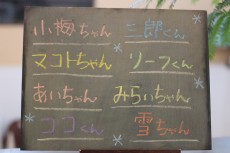 小梅ちゃん 三郎くん
マコトちゃん リーフくん
あいちゃん みらいちゃん
ココくん 雪ちゃん